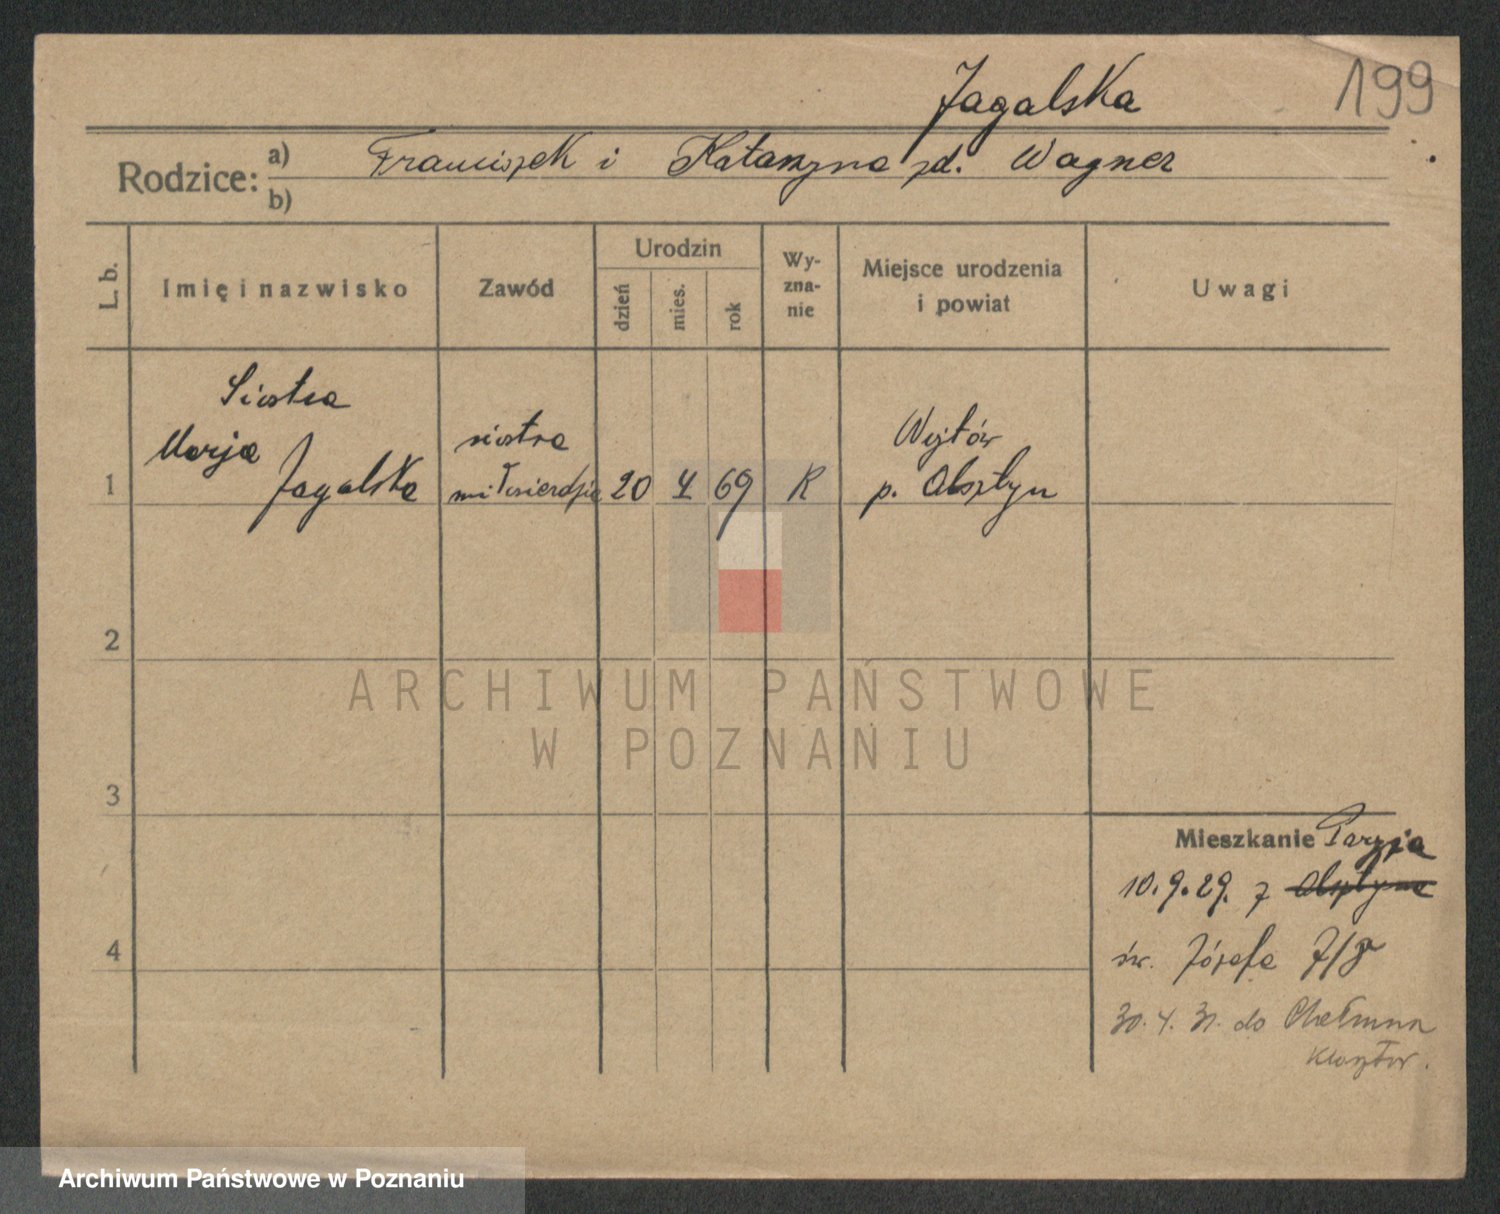 Jagalska
199
Rodzice: a) Franciszek i Katarzyna zd. Wagner
b)
L. b.
Imię i nazwisko
Zawód
Urodzin
dzień
mies.
rok
Wy-
zna-
nie
Miejsce urodzenia
i powiat
Uwagi
Siostra
Marja
Jagalska
siostra
miłosierdzia
1
20 4 69 K
Wójtów
p. Olsztyn
2
ARCHIWUM PAŃSTWOWE
W POZNANIU
3
Mieszkanie Paryża
10.9.29. z Olsztyna
św. Józefa 7/8
4
30.4.31. do Chełmna
Klasztor.
Archiwum Państwowe w Poznaniu